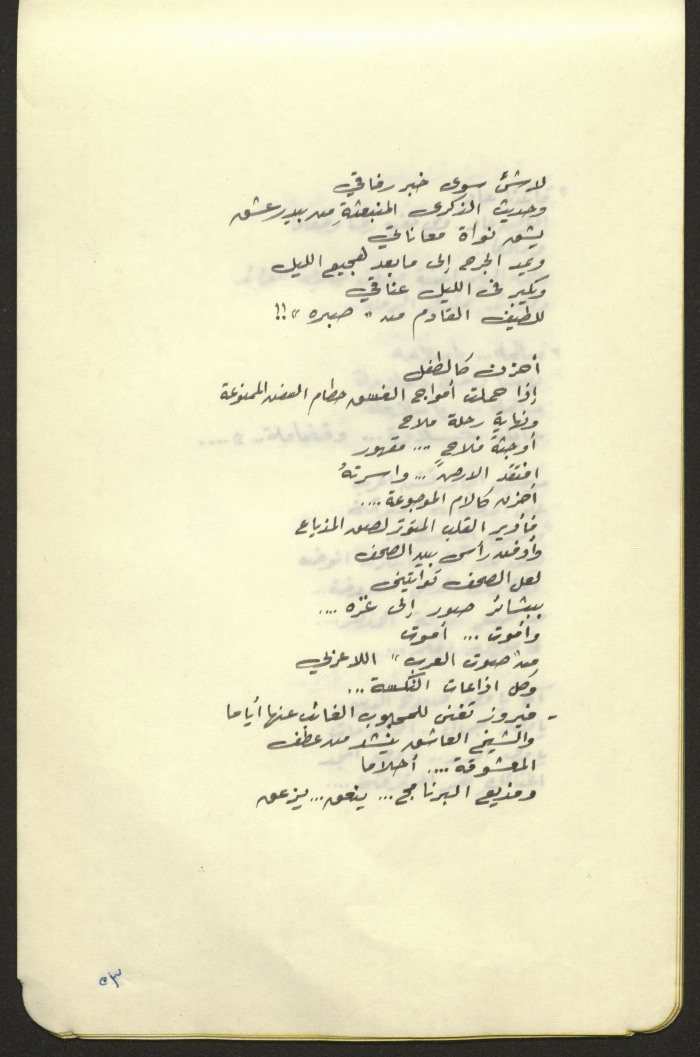 لاشئ سوى خبر رفاقي
وحديث الذكرى المنبعثةِ من بيدر عشق
يشق نواة معاناتي
ويمد الجرح إلى مابعد هجيع الليل
ويكبر فى الليل عناقي
للطيف القادم من " صبره "!!
أحزن كالطفل
إذا حملت أمواج الغسق حطام السفن الممنوعة
ونهاية رحلة ملاح
أوجثة فلاحٍ .... مقهور
افتقد الارضَ ... واسرتهُ
أحزن كالام الموجوعة ....
فأدير القلب المتوتر لصوت المذياع
وأدفن رأسى بين الصحف
لعل الصحف تواتينى
ببشائر صور إلى غزه ....
وأموت ... أموت
من "صوت العرب" اللاعربي
وكل اذاعات النكسة ...
- فيروز تغنى للمحبوب الغائب عنها أياما
والشيخ العاشق ينشد من عطف
المعشوقة .... أحلاما
ومذيع البرنامج ... ينعق ... يزعق
٥٣